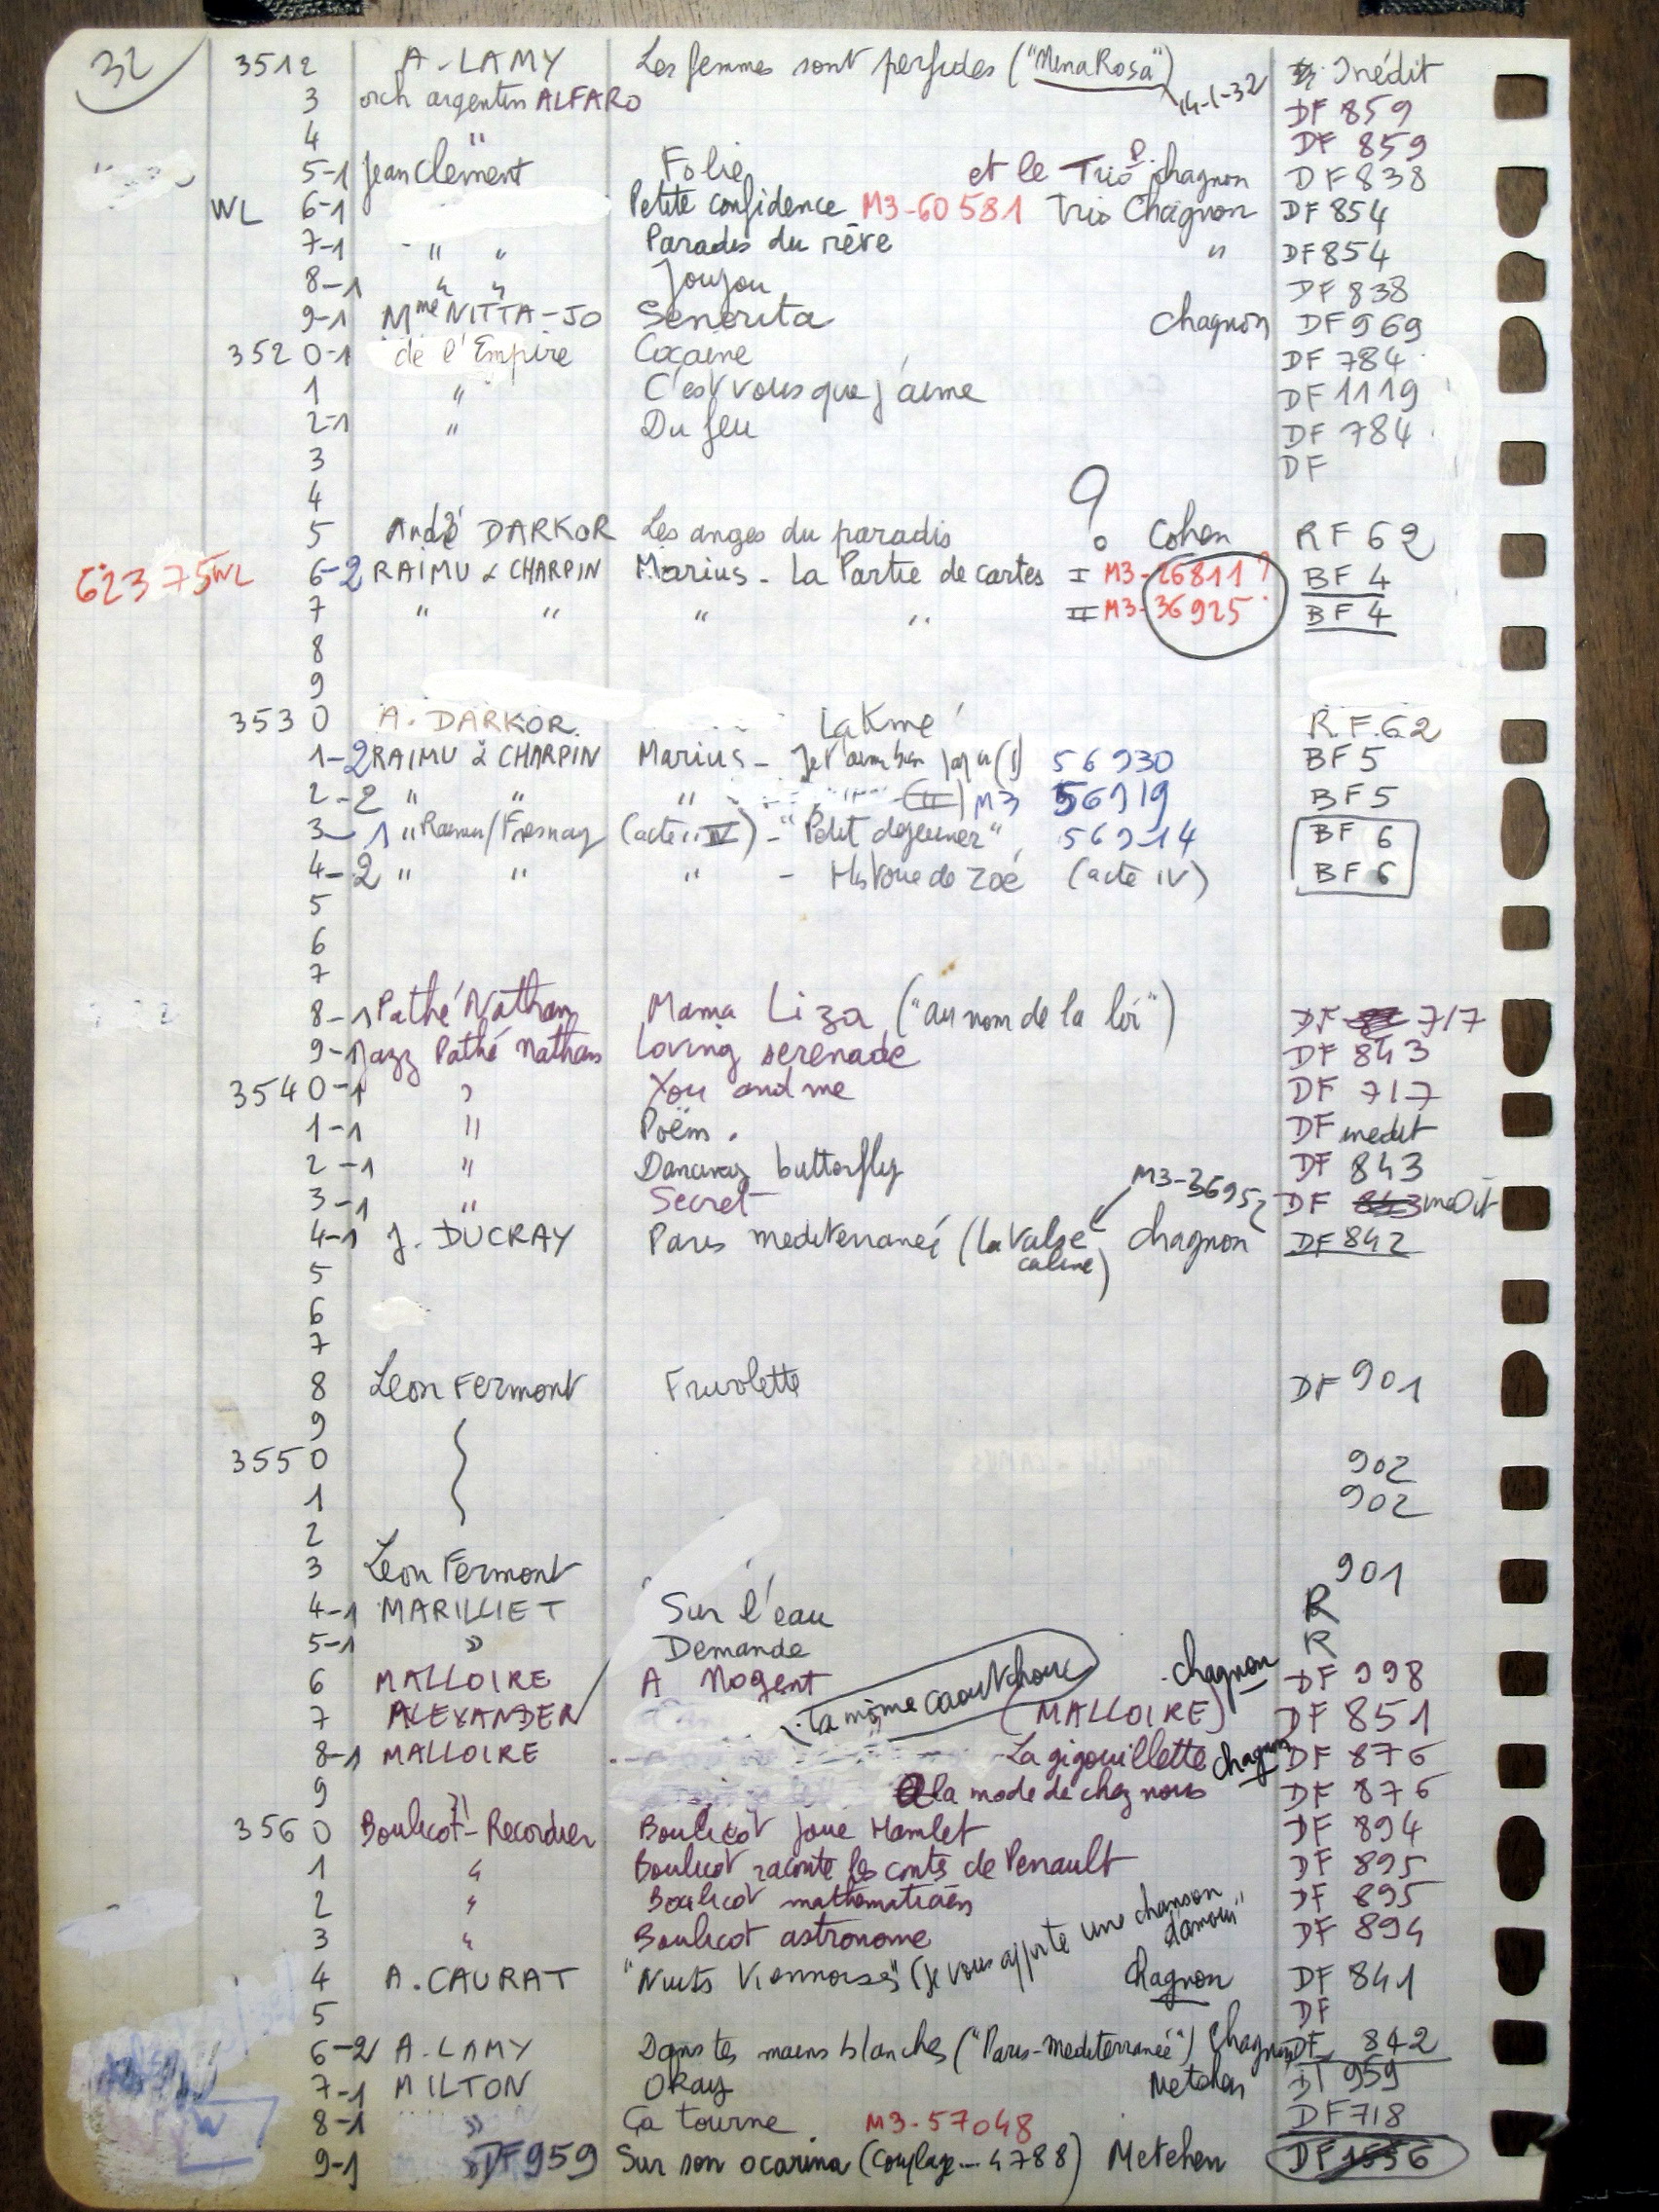 32
3512 A. LAMY Les femmes sont perfides ("Mina Rosa") 14-1-32 Inédit
3 orch argentin ALFARO DF 859
4 " DF 859
5-1 Jean Clement Folie et le Trio P. Chagnon DF 838
WL 6-1 Petite confidence M3-60581 Trio Chagnon DF 854
7-1 " " Paradis du rêve " DF 854
8-1 " " Joujou DF 838
9-1 Mme NITTA-JO Senorita Chagnon DF 969
3520-1 de l'Empire Cocaine DF 784
1 " C'est vous que j'aime DF 1119
2-1 " Du feu DF 784
3 DF
4
5 André DARKOR Les anges du paradis ? Cohen RF 62
62375 WL 6-2 RAIMU & CHARPIN Marius - La Partie de cartes I M3-26811 ? BF 4
7 " " " " II M3-36925 BF 4
8
9
3530 A. DARKOR. Lakmé R.F. 62
1-2 RAIMU & CHARPIN Marius - (I) 56930 BF 5
2-2 " " " (II) M3 56919 BF 5
3-1 " Raimu/Fresnay (acte IV) - "Petit dejeuner" 56914 BF 6
4-2 " " " - Histoire de Zoé (acte IV) BF 6
5
6
7
8-1 Pathé Nathan Mama Liza ("au nom de la loi") DF 717
9-1 Jazz Pathé Nathan Loving serenade DF 843
3540-1 " You and me DF 717
1-1 " Poëm. DF inedit
2-1 " butterfly DF 843
3-1 " Secret DF 843 inedit
M3-36952
4-1 J. DUCRAY Paris mediterranée (la Valse caline) Chagnon DF 842
5
6
7
8 Leon Fermont Frivolette DF 901
9
3550 902
1 902
2
3 Leon Fermont 901
4-1 MARILLIET Sur l'eau R
5-1 " Demande R
6 MALLOIRE A Nogent Chagnon DF 998
7 ALEXANDER La môme caoutchouc (MALLOIRE) DF 851
8-1 MALLOIRE La gigouillette Chagnon DF 876
9 " A la mode de chez nous DF 876
3560 Boulicot-Recordier Boulicot joue Hamlet DF 894
1 " Boulicot raconte les contes de Perrault DF 895
2 " Boulicot mathematicien DF 895
3 " Boulicot astronome DF 894
4 A. CAURAT "Nuits Viennoises" (Je vous apporte une chanson d'amour" Chagnon DF 841
5 DF
6-2 A. LAMY Dans tes mains blanches ("Paris-mediterranée") Chagnon DF 842
7-1 MILTON Okay Metehen DF 959
8-1 " Ça tourne M3-57048 DF 718
W
9-1 " DF 959 Sur son ocarina (Couplage - 4788) Metehen DF 1556